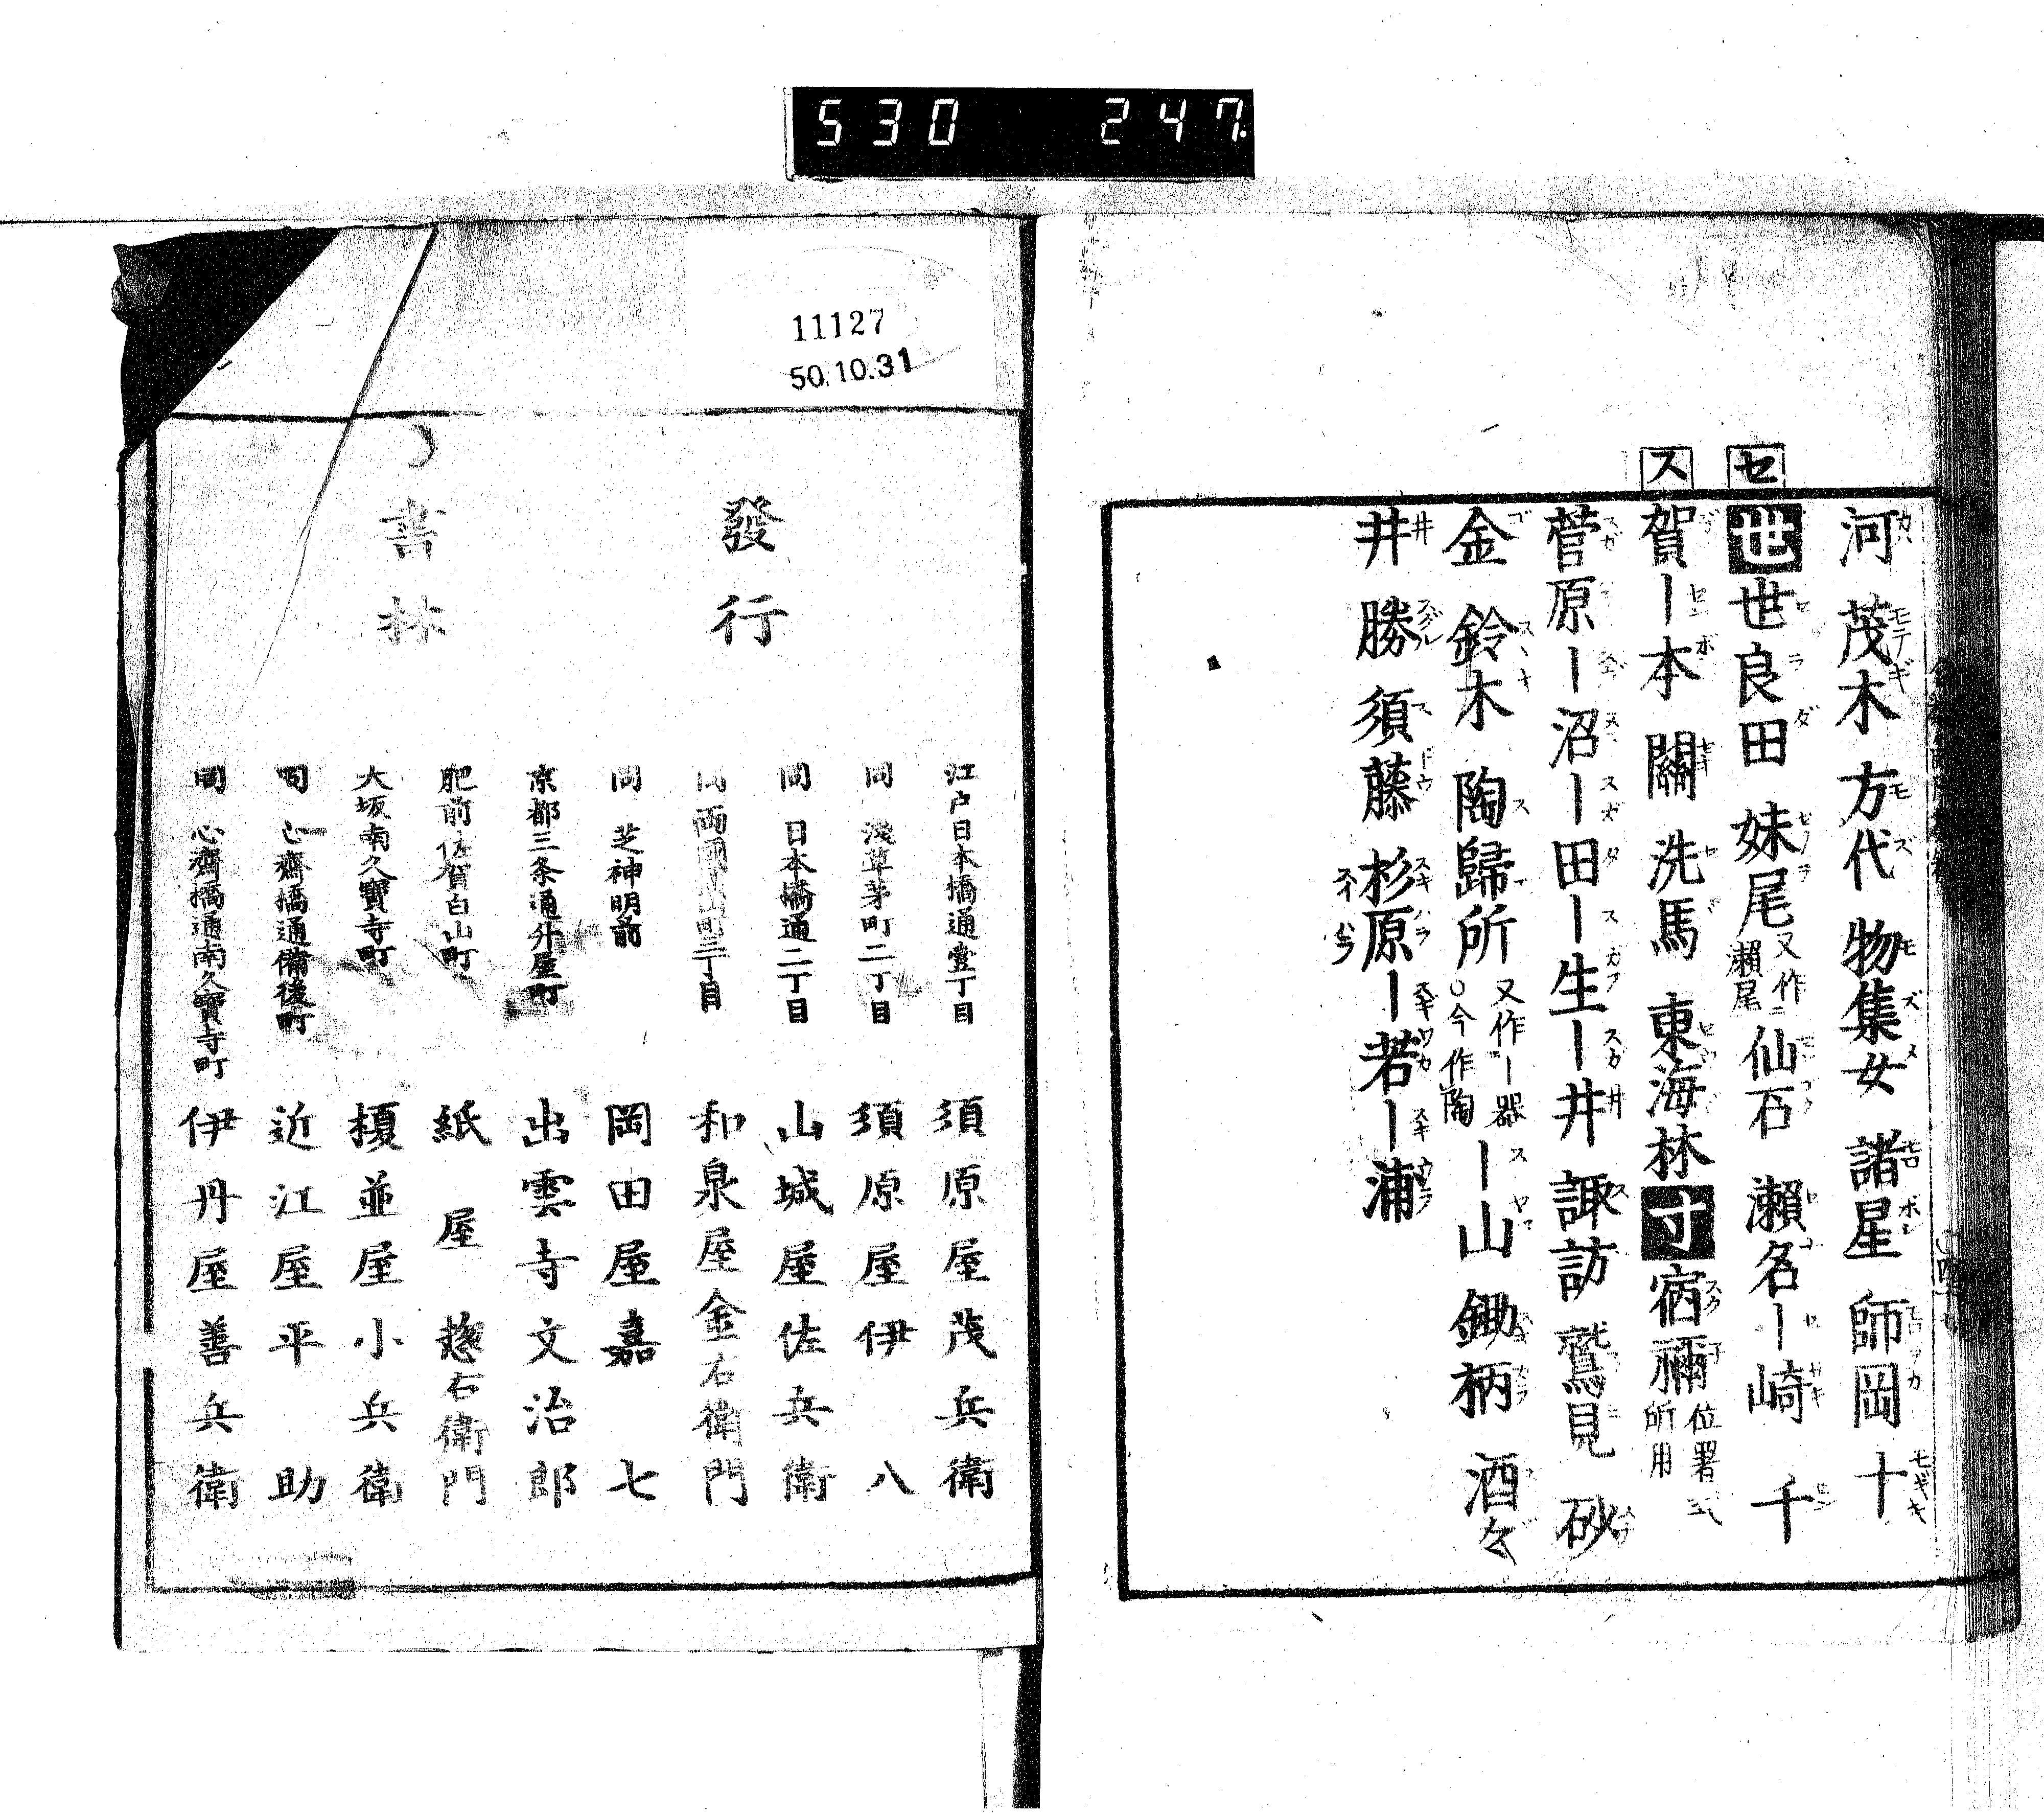 530 247.
セ
ス
河 茂木 方代 物集女 諸星 師岡 十
世 世良田 妹尾 又作二瀬尾 仙石 瀬名 ー崎 千
賀 ー本 關 洗馬 東海林 寸 宿禰 位署 所用
菅原 ー沼 ー田 ー生 ー井 諏訪 鷲見 砂
金 鈴木 陶 歸所 又作ー器 〇今作陶 ー山 鋤柄 酒々
井 勝 須藤 杉原 ー若 ー浦
11127
50.10.31
發行
書林
江戸日本橋通壹丁目 須原屋茂兵衛
同 淺草茅町二丁目 須原屋伊八
同 日本橋通二丁目 山城屋佐兵衛
同 両國横山町三丁目 和泉屋金右衛門
同 芝神明前 岡田屋嘉七
京都三条通升屋町 出雲寺文治郎
肥前佐賀白山町 紙屋惣右衛門
大坂南久寶寺町 榎並屋小兵衛
同 心齋橋通備後町 近江屋平助
同 心齋橋通南久寶寺町 伊丹屋善兵衛